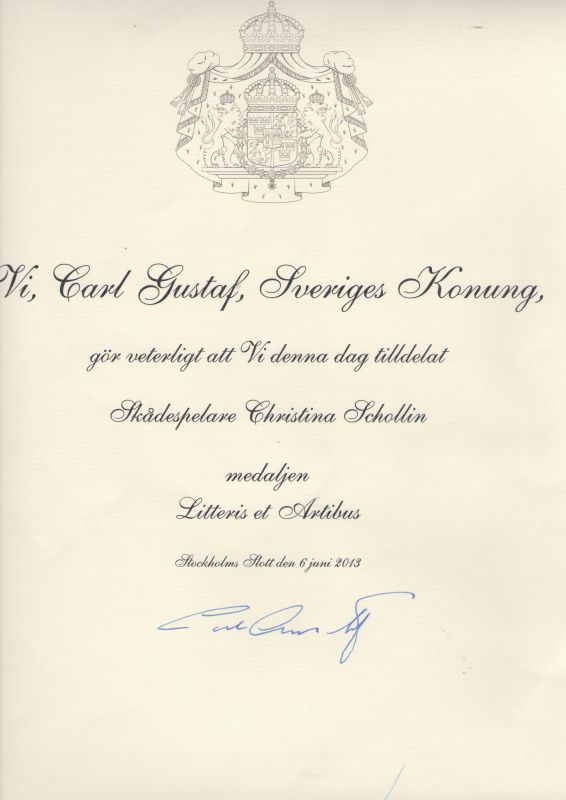 Vi, Carl Gustaf, Sveriges Konung,
gör veterligt att Vi denna dag tilldelat
Skådespelare Christina Schollin
medaljen
Litteris et Artibus
Stockholms Slott den 6 juni 2013
Carl Gustaf